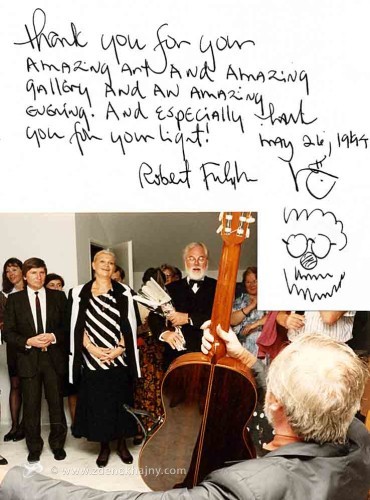 thank you for your
Amazing Art And Amazing
gallery And An Amazing
evening. And especially thank
you for your light!
May 26, 1994
Robert
© www.zdenekhajny.com